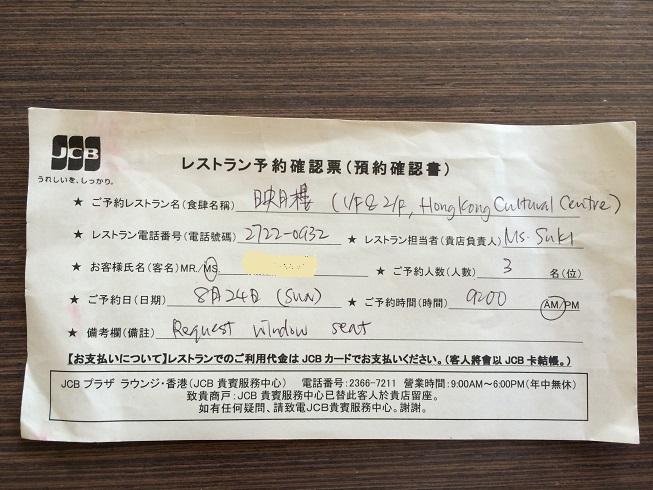 JCB
うれしいを、しっかり。
レストラン予約確認票(預約確認書)
★ ご予約レストラン名(食肆名稱) 映月樓 (1/F & 2/F, Hong Kong Cultural Centre)
★ レストラン電話番号(電話號碼) 2722-0932 ★ レストラン担当者(貴店負責人) Ms. Suki
★ お客様氏名(客名) MR./MS. ★ ご予約人数(人數) 3 名(位)
★ ご予約日(日期) 8月24日 (SUN) ★ ご予約時間(時間) 9:00 AM/PM
★ 備考欄(備註) Request window seat
【お支払いについて】レストランでのご利用代金は JCB カードでお支払いください。(客人將會以 JCB 卡結帳。)
JCB プラザ ラウンジ・香港(JCB 貴賓服務中心) 電話番号:2366-7211 営業時間:9:00AM～6:00PM(年中無休)
致貴商戸:JCB 貴賓服務中心已替此客人於貴店留座。
如有任何疑問、請致電JCB貴賓服務中心。謝謝。